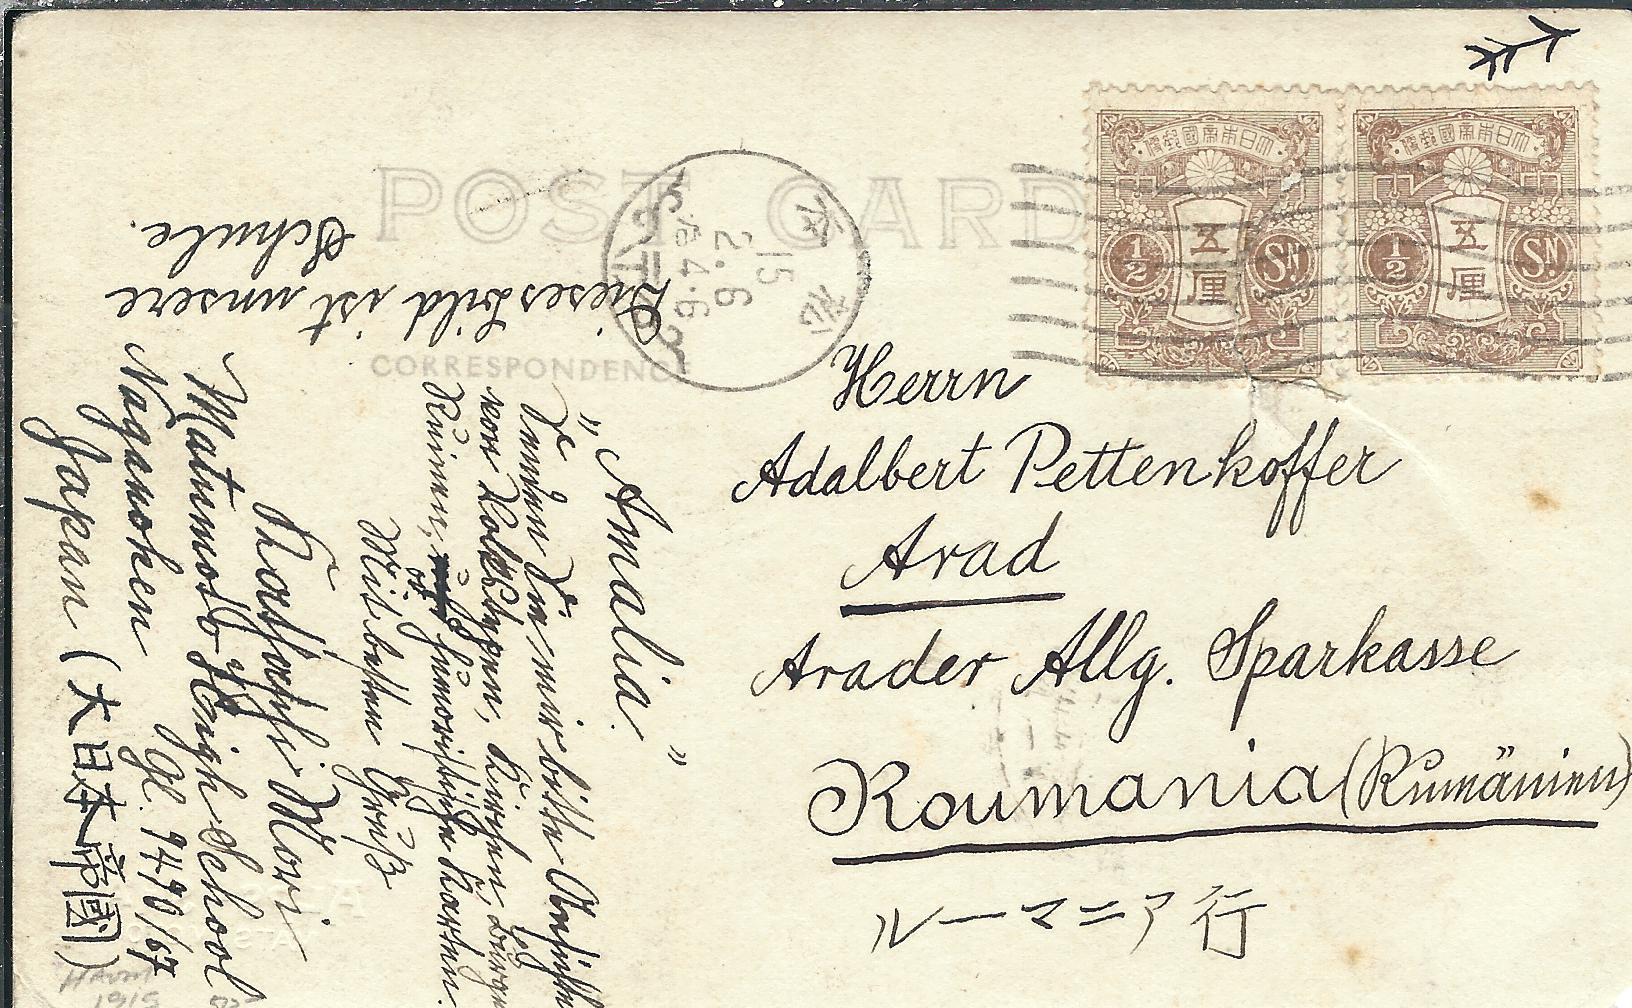 POST CARD
CORRESPONDENCE
大日本帝國郵便
五厘
1/2
SN
大日本帝國郵便
五厘
1/2
SN
MATSUMOTO
15
2.6
4-6
Herrn
Adalbert Pettenkoffer
Arad
Arader Allg. Sparkasse
Roumania (Rumänien)
ルーマニア行
Dieses bild ist unsere
Schule.
„Amalia."
Senden Sie mir bitte Ansichten
von Volkstypen, Kirchen, Burgen
Ruinen, od. humoristische Karten.
Mit bestem Gruß
Mori
Matumoto High School
Naganoken
Gl. 9490/67
Japan (大日本帝國)
1915